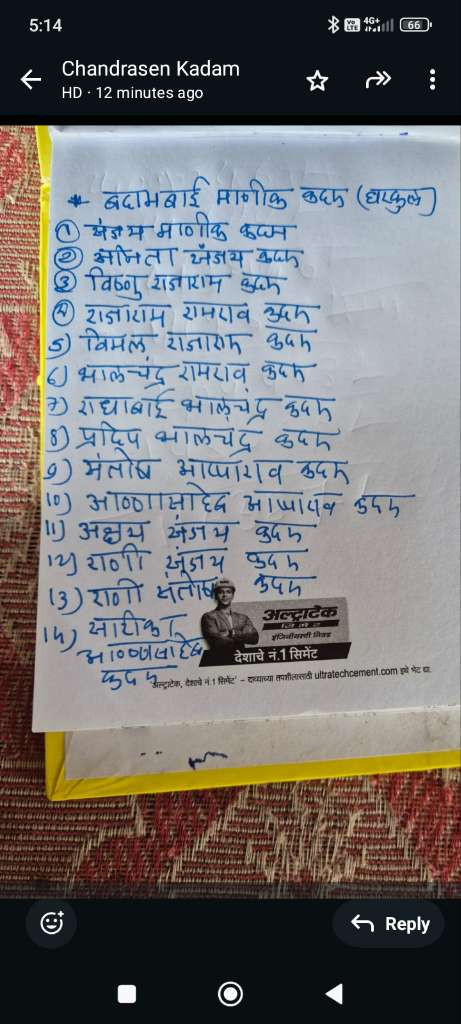 5:14
Vo LTE 4G+ 66
Chandrasen Kadam
HD · 12 minutes ago
* बदामबाई माणीक कदम (घरकुल)
① संजय माणीक कदम
② अनिता संजय कदम
③ विष्णु राजाराम कदम
④ राजाराम रामराव कदम
5) विमल राजाराम कदम
6) भालचंद्र रामराव कदम
7) राधाबाई भालचंद्र कदम
8) प्रदिप भालचंद्र कदम
9) संतोष आप्पाराव कदम
10) आण्णासाहेब आप्पाराव कदम
11) अक्षय संजय कदम
12) राणी संजय कदम
13) राणी संतोष कदम
14) सारीका
आण्णासाहेब
कदम
अल्ट्राटेक
सिमेंट
इंजिनीयरची निवड
देशाचे नं.1 सिमेंट
'अल्ट्राटेक, देशाचे नं.1 सिमेंट' – दाव्याच्या तपशीलासाठी ultratechcement.com इथे भेट द्या.
Reply